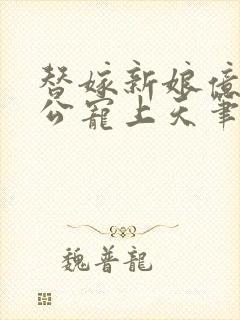 替嫁新娘億
公寵上天筆
魏普龍